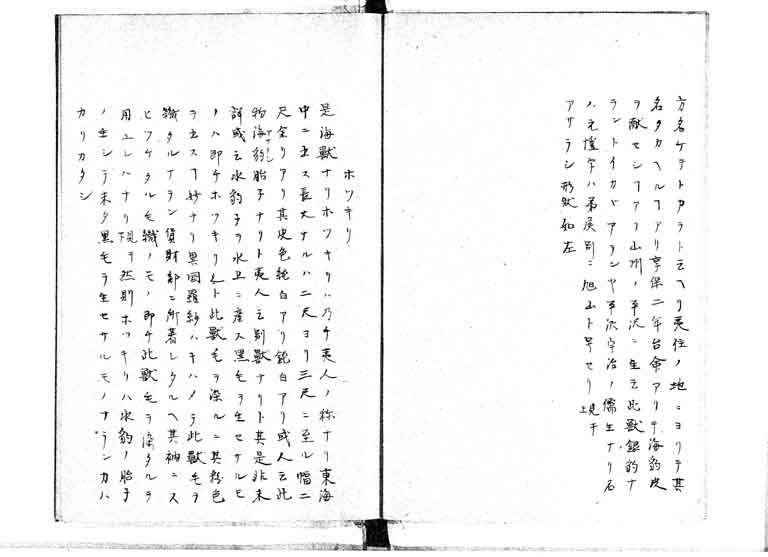 方名ケテトカラト云ヘリ夷住ノ地ニヨリテ其
名タカヘルアリ享保二年台命アリテ海豹皮
ヲ献セシアリ山州ノ平沢ニ生云此獣銀豹ナ
ラントイカバアランヤ平沢宇治ノ儒生ナリ石
ノ元 ハ弟 別ニ旭山ト号セリ現千
アサラシ形状如左
ホツキリ
是海獣ナリホツキリハ乃チ夷人ノ称ナリ東海
中ニ出ス長大ナルハ二尺ヨリ三尺ニ至ル幅二
尺全リアリ其皮色純白アリ鈍白アリ或人云此
物海豹胎子ナリト夷人云別獣ナリト其是非未
詳或云水豹子ヲ氷上ニ産ス黒毛ヲ生セサルモ
ノハ即チホツキリ ト此獣毛ヲ染ルニ其粉色
ヲ出スヿ妙ナリ異国羅紗ハキハメテ此獣毛ヲ
織タルナラン貨財部ニ所著レタルヘ其袖ニス
ヒツケタル毛織ノモノ即チ此獣毛ヲ染タルヲ
用ユレハナリ現ヲ然則ホツキリハ水豹ノ胎子
ノ生シテ未タ黒毛ヲ生セサルモノナランカハ
カリカタシ